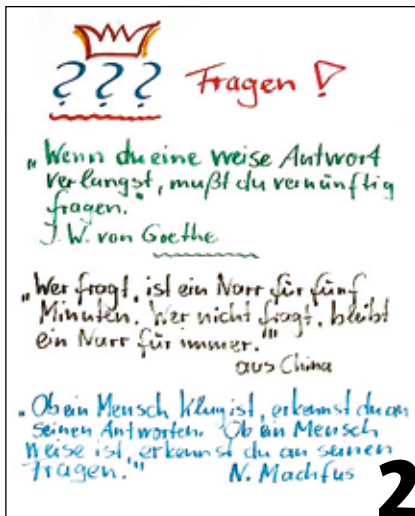 ??? Fragen!
„Wenn du eine weise Antwort
verlangst, mußt du vernünftig
fragen."
J. W. von Goethe
„Wer fragt, ist ein Narr für fünf
Minuten. Wer nicht fragt, bleibt
ein Narr für immer."
aus China
„Ob ein Mensch klug ist, erkennst du an
seinen Antworten. Ob ein Mensch
weise ist, erkennst du an seinen
Fragen."
N. Machfus
2